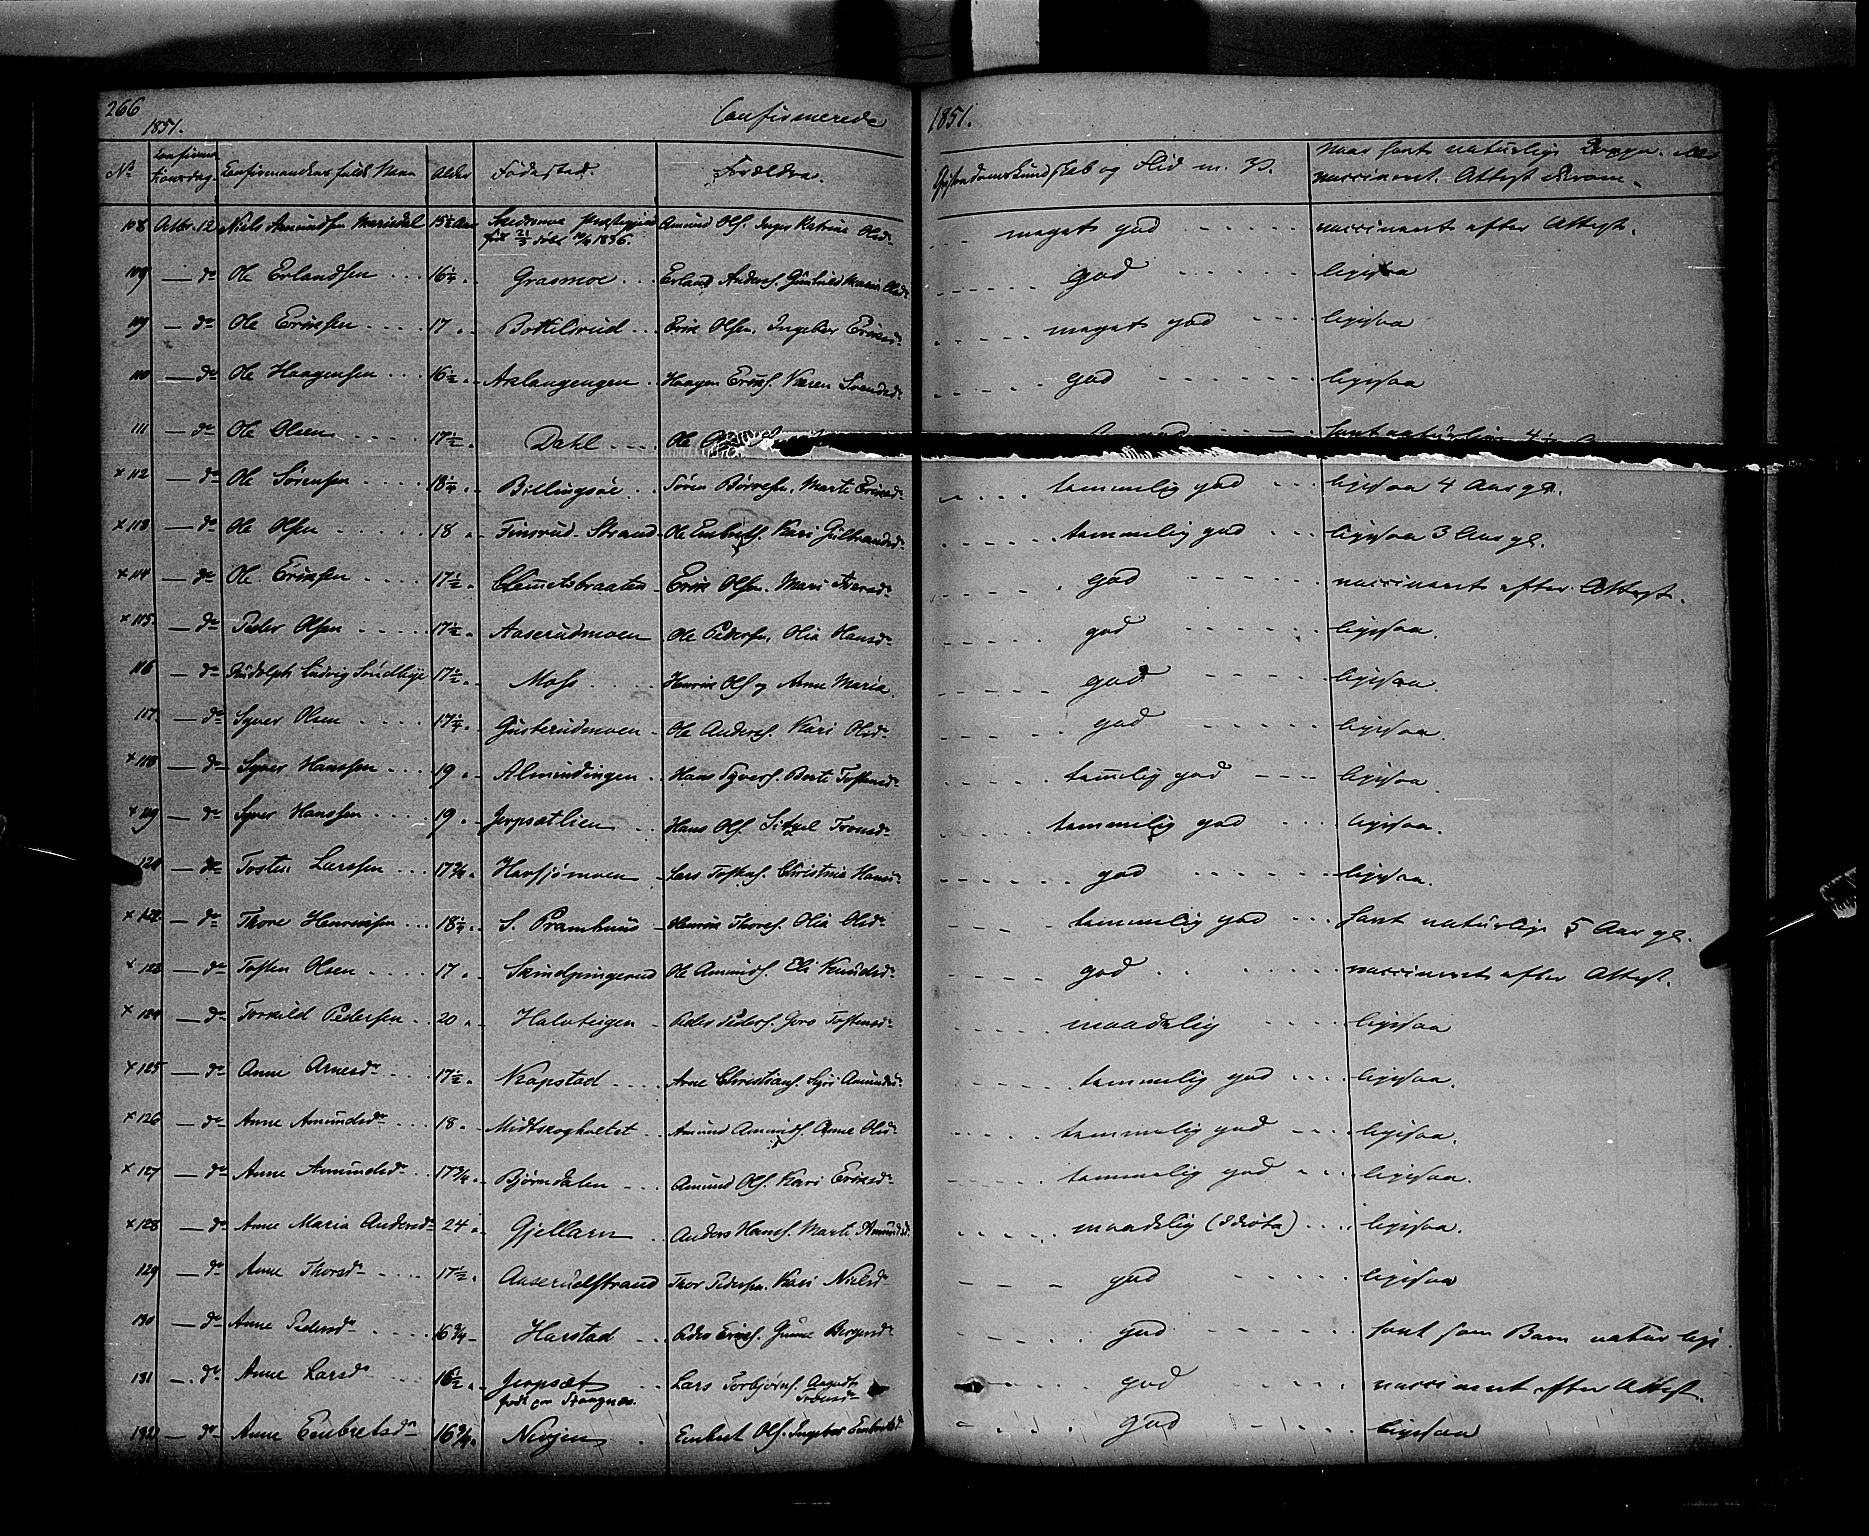 266
1851. Confirmerede 1851.
No Confirmationsdag. Confirmandens fulde Navn Alder Fødested. Forældre. Christendomskundskab og Flid m. D. Naar havt naturlige Kopper eller vaccineret. Attest derom.
108 Octbr. 12 Niels Amundsen Mariedal 15½ Aar Skedsmoe Præstegjeld Amund Olss. Inger Katrine Olsd. meget god vaccineret efter Attest.
109 — do Ole Erlandsen 16¼ Grasmoe Erland Anderss. Gunhild Marie Olsd. god ligesaa
109 — do Ole Eriksen 17 Bottilsrud Erik Olsen. Ingebor Eriksd. meget god ligesaa
110 — do Ole Haagensen 16½ Aslangengen Haagen Erikss. Karen Svendsd. god ligesaa
111 — do Ole Olsen 17½ Dahl Ole havt naturlige
x 112 — do Ole Sørensen 18¼ Billingsøe Søren Børresen. Marte Eriksd. temmelig god ligesaa 4 Aar gl.
x 113 — do Ole Olsen 18 Finsrud-Strand Ole Embrets. Kari Gulbrandsd. temmelig god ligesaa 3 Aar gl.
x 114 — do Ole Eriksen 17½ Clemetsbraaten Erik Olsen. Mari Iversd. god vaccineret efter Attest.
x 115 — do Peder Olsen 17½ Aaserudmoen Ole Pedersen, Olia Hansd. god ligesaa.
116 — do Rudolph Ludvig Sundbye 17½ Moss Henrik Olss og Anne Maria god ligesaa.
117 — do Syver Olsen 17¼ Gusterudmoen Ole Anderss. Kari Olsd. god ligesaa.
x 118 — do Syver Hanssen 19 Almindingen Hans Syverss. Berte Tostensd. temlig god ligesaa.
x 119 — do Syver Hanssen 19 Jerpsætlien Hans Olss. Sitzel Tronsd. temmelig god ligesaa.
120 — do Tosten Larssen 17¾ Havsjømoen Lars Tostens. Christine Hansd. god ligesaa.
x 122 — do Thore Henriksen 18¼ S. Pramhuus Henrik Thoress. Olia Olsd. temmelig god havt naturlige 5 Aar gl.
x 123 — do Tosten Olsen 17 Skindpungerud Ole Amunds. Eli Knudsd. god vaccineret efter Attest.
x 124 — do Torkild Pedersen 20 Halvteigen Peder Pederss. Goro Tostensd. maadelig ligesaa
x 125 — do Anne Arnesd. 17½ Kopstad Arne Christians. Sigri Amundsd. temmelig god ligesaa.
x 126 — do Anne Amundsd. 18 Midtskoghvelet Amund Amunds. Anne Olsd. temmelig god ligesaa.
x 127 — do Anne Amundsd. 17¾ Bjørndalen Amund Olss. Kari Eriksd. temmelig god ligesaa.
x 128 — do Anne Maria Andersd. 24 Gjellarn Anders Hanss. Marte Amundsd. maadelig (Idiota) ligesaa.
129 — do Anne Thorsd. 17½ Aaserudstrand Thor Pedersen. Kari Nielsd. god ligesaa
130 — do Anne Pedersd. 16¾ Harstad Peder Erikss. Gunne Børgersd. god havt som Barn naturlige
131 — do Anne Larsd. 16½ Jerpsæt Lars Torbjørns. Aagodt Tronsd. god vaccineret efter Attest.
født paa
132 — do Anne Embretsd. 16¾ Nerjen Embret Olss. Ingebor Embretsd. god ligesaa